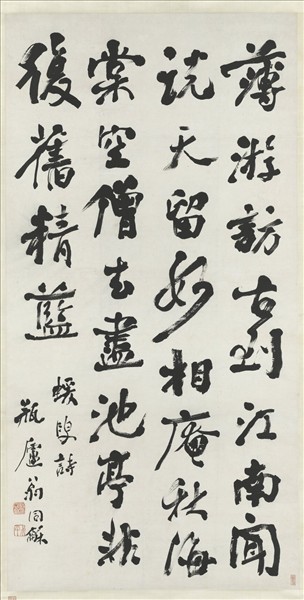 薄游訪古到江南聞
説天留妙相庵秋海
棠空僧去盡池亭非
復舊精藍
蝯叟詩
瓶廬翁同龢